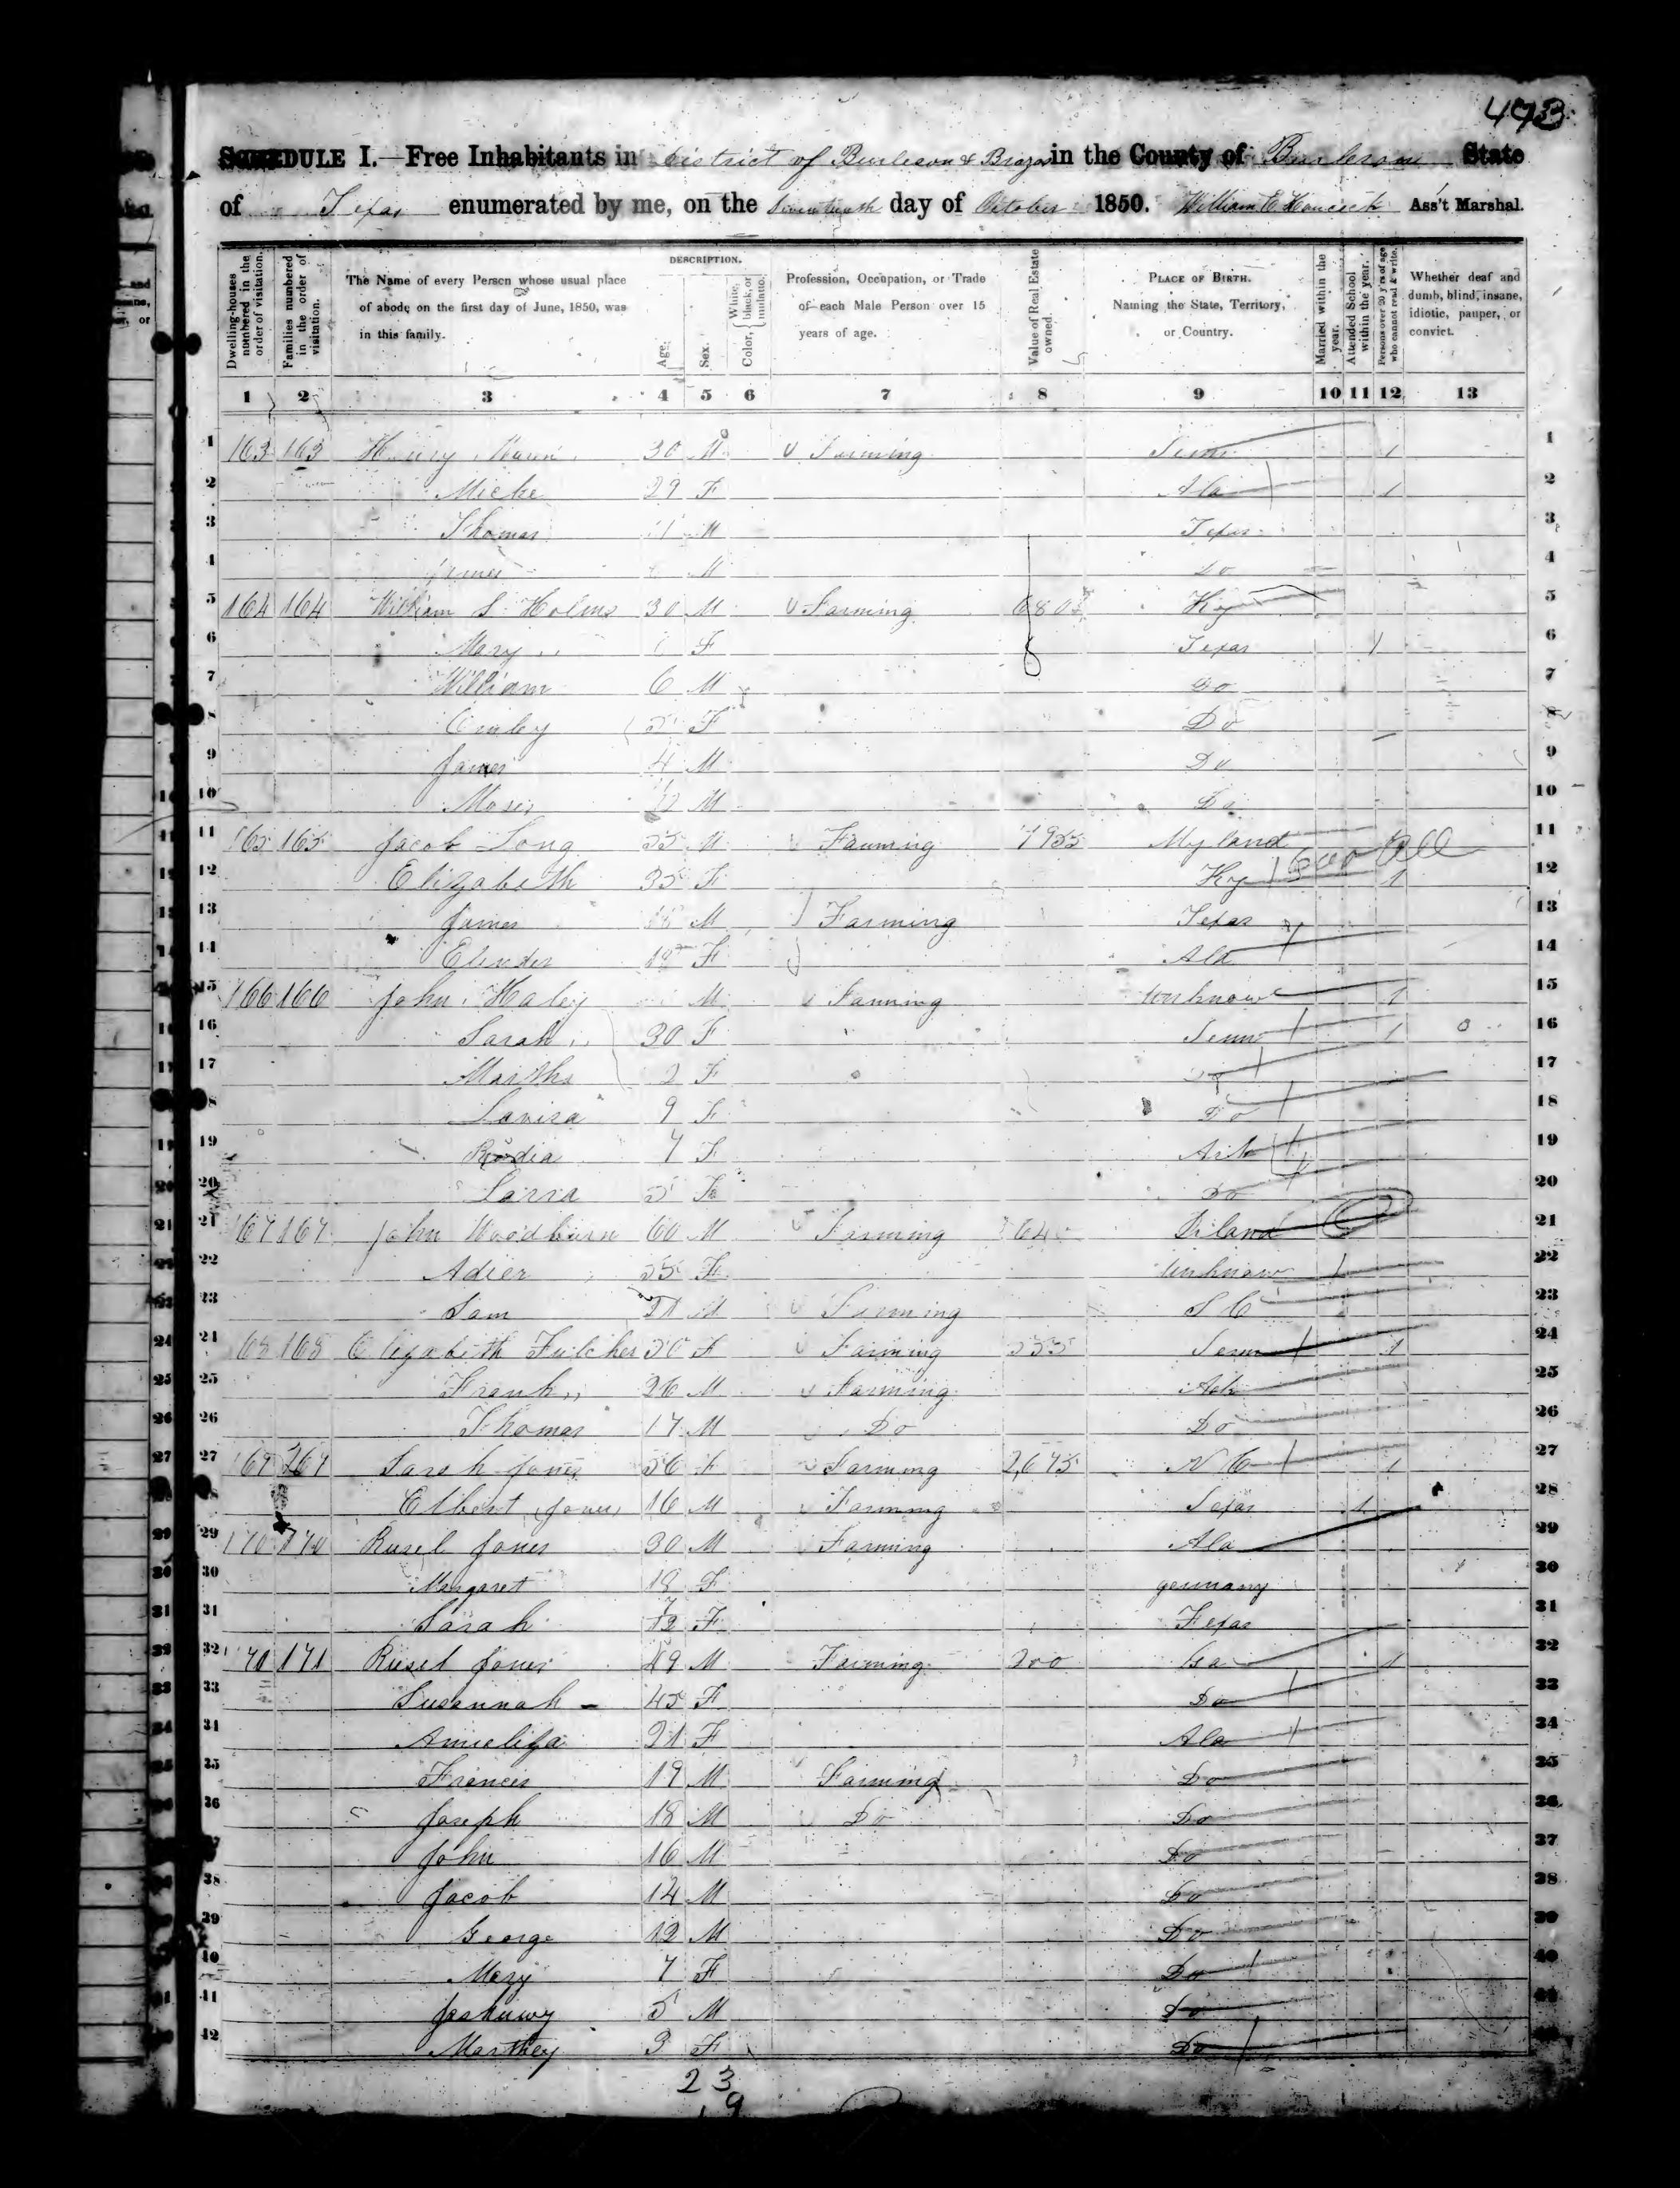 473
SCHEDULE I.—Free Inhabitants in District of Burleson & Brazos in the County of Burleson State
of Texas enumerated by me, on the Seventeenth day of October 1850. William E Hancock Ass't Marshal.
Dwelling-houses numbered in the order of visitation.
Families numbered in the order of visitation.
The Name of every Person whose usual place of abode on the first day of June, 1850, was in this family.
DESCRIPTION.
Age.
Sex.
Color, { White, black, or mulatto.
Profession, Occupation, or Trade of each Male Person over 15 years of age.
Value of Real Estate owned.
PLACE OF BIRTH. Naming the State, Territory, or Country.
Married within the year.
Attended School within the year.
Persons over 20 y'rs of age who cannot read & write.
Whether deaf and dumb, blind, insane, idiotic, pauper, or convict.
1 2 3 4 5 6 7 8 9 10 11 12 13
1 163 163 Henry 30 M Farming Tenn 1 1
2 29 F Ala 1 2
3 Thomas M Texas 3
4 James M Do 4
5 164 164 William S Holms 30 M Farming 680 Ky 5
6 Mary F Texas 1 6
7 William 6 M Do 7
8 Emley 5 F Do 8
9 James 4 M Do 9
10 Moses M Do 10
11 165 165 Jacob Long 55 M Farming 1955 Myland 11
12 Elizabeth 35 F Ky 1 12
13 James M Farming Texas 13
14 Elender F Ala 14
15 166 166 John Haley M Farming unknown 1 15
16 Sarah 30 F Tenn 1 16
17 Martha 2 F Do 17
18 Lavisa 9 F Do 18
19 Rodia 7 F Ark 19
20 Larra 5 F Do 20
21 167 167 John Woodburn 60 M Farming 640 21
22 Adier 55 F unknown 22
23 Sam 21 M Farming S C 23
24 168 168 Elizabeth Fulcher 50 F Farming 555 Tenn 1 24
25 Frank 26 M Farming Ark 25
26 Thomas 17 M Do Do 26
27 169 269 Sarah Jones 56 F Farming 2,675 N C 1 27
28 Elbert Jones 16 M Farming Texas 1 28
29 170 170 Rusel Jones 30 M Farming Ala 29
30 Margaret 18 F germany 30
31 Sarah 7/12 F Texas 31
32 171 171 Rusel Jones 49 M Farming 200 Ga 1 32
33 Susannah 45 F Do 33
34 Annieliza 21 F Ala 34
35 Francis 19 M Farming Do 35
36 Joseph 18 M Do Do 36
37 John 16 M Do 37
38 Jacob 14 M Do 38
39 George 12 M Do 39
40 Mary 7 F Do 40
41 Joshuwy 5 M Do 41
42 Marthey 3 F Do 42
23
19